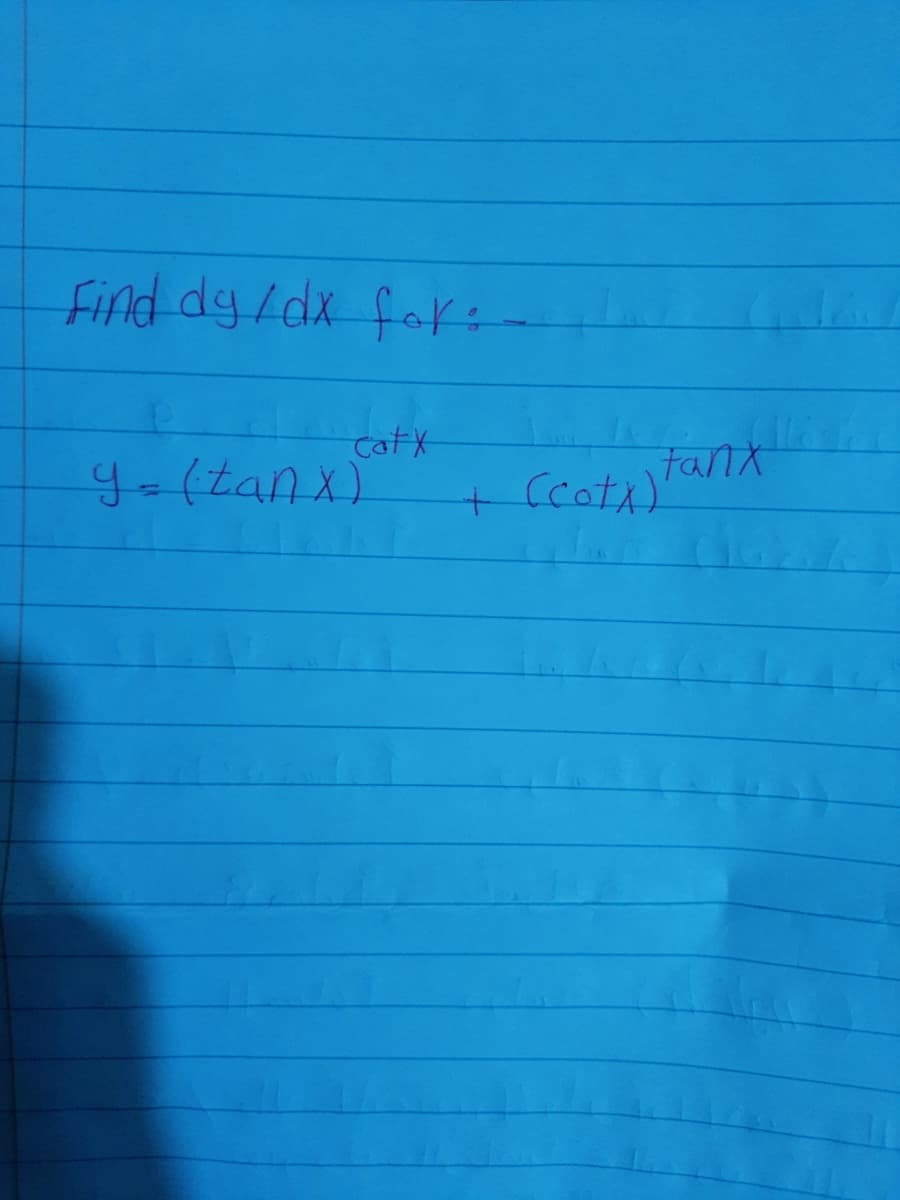 Find dy/dx for:-
y = (tan x)^cotx + (cotx)^tanx